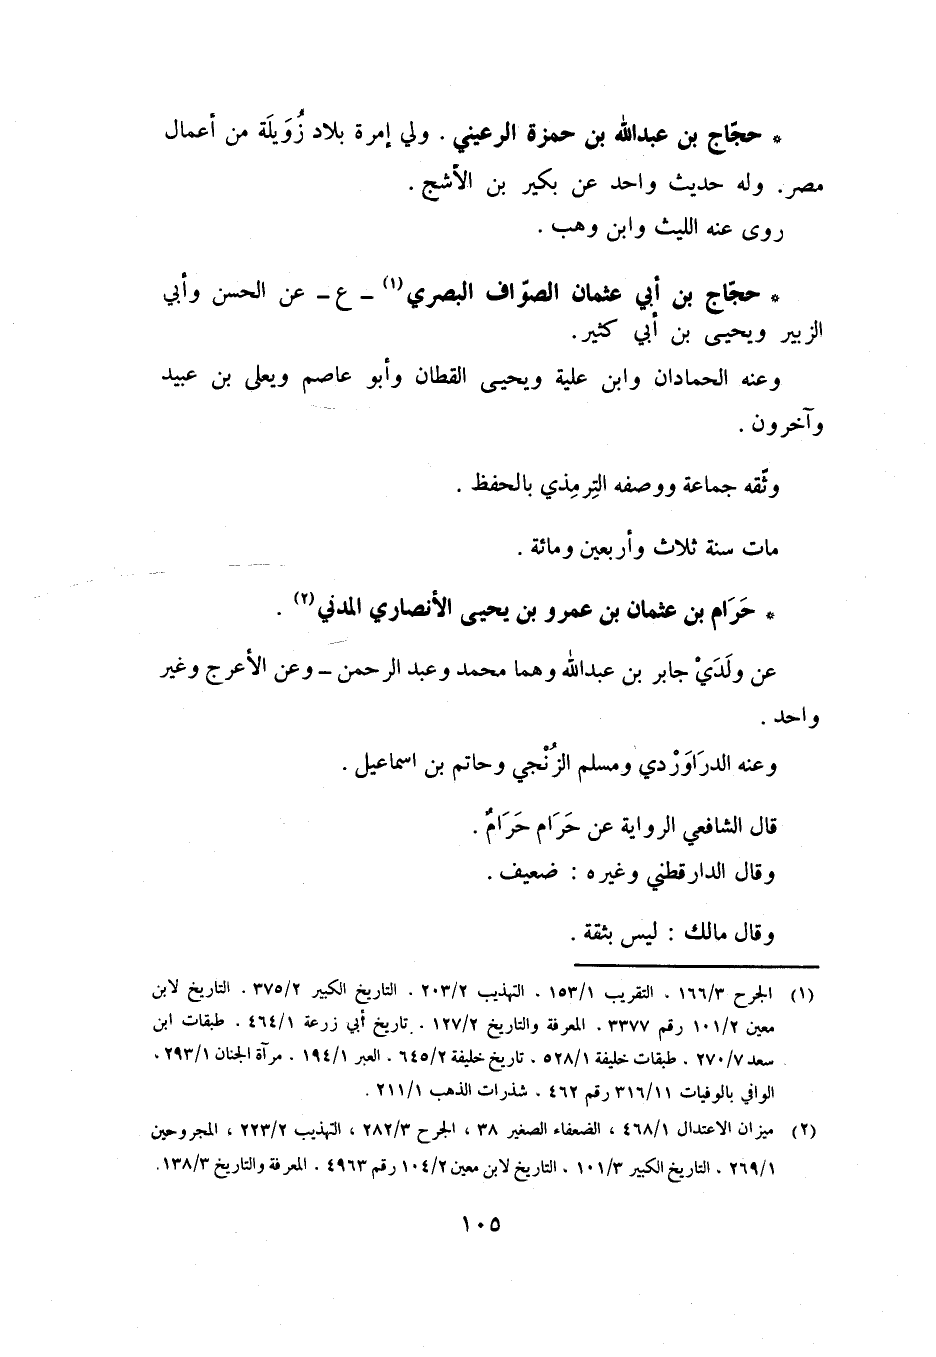 * حجّاج بن عبدالله بن حمزة الرعيني . ولي إمرة بلاد زُوَيلَة من أعمال
مصر . وله حديث واحد عن بكير بن الأشج .
روى عنه الليث وابن وهب .
* حجّاج بن أبي عثمان الصوّاف البصري(١) ـ ع ـ عن الحسن وأبي
الزبير ويحيى بن أبي كثير .
وعنه الحمادان وابن علية ويحيى القطان وأبو عاصم ويعلى بن عبيد
وآخرون .
وثّقه جماعة ووصفه التِرمِذي بالحفظ .
مات سنة ثلاث وأربعين ومائة .
* حَرَام بن عثمان بن عمرو بن يحيى الأنصاري المدني(٢) .
عن ولَدَيْ جابر بن عبدالله وهما محمد وعبد الرحمن ـ وعن الأعرج وغير
واحد .
وعنه الدرَاوَرْدي ومسلم الزُنْجي وحاتم بن اسماعيل .
قال الشافعي الرواية عن حَرَام حَرَامٌ .
وقال الدارقطني وغيره : ضعيف .
وقال مالك : ليس بثقة .
(١) الجرح ١٦٦/٣ . التقريب ١٥٣/١ . التهذيب ٢٠٣/٢ . التاريخ الكبير ٣٧٥/٢ . التاريخ لابن
معين ١٠١/٢ رقم ٣٣٧٧ . المعرفة والتاريخ ١٢٧/٢ . تاريخ أبي زرعة ٤٦٤/١ . طبقات ابن
سعد ٢٧٠/٧ . طبقات خليفة ٥٢٨/١ . تاريخ خليفة ٦٤٥/٢ . العبر ١٩٤/١ . مرآة الجنان ٢٩٣/١ .
الوافي بالوفيات ٣١٦/١١ رقم ٤٦٢ . شذرات الذهب ٢١١/١ .
(٢) ميزان الاعتدال ٤٦٨/١ ، الضعفاء الصغير ٣٨ ، الجرح ٢٨٢/٣ ، التهذيب ٢٢٣/٢ ، المجروحين
٢٦٩/١ . التاريخ الكبير ١٠١/٣ . التاريخ لابن معين ١٠٤/٢ رقم ٤٩٦٣ . المعرفة والتاريخ ١٣٨/٣ .
١٠٥